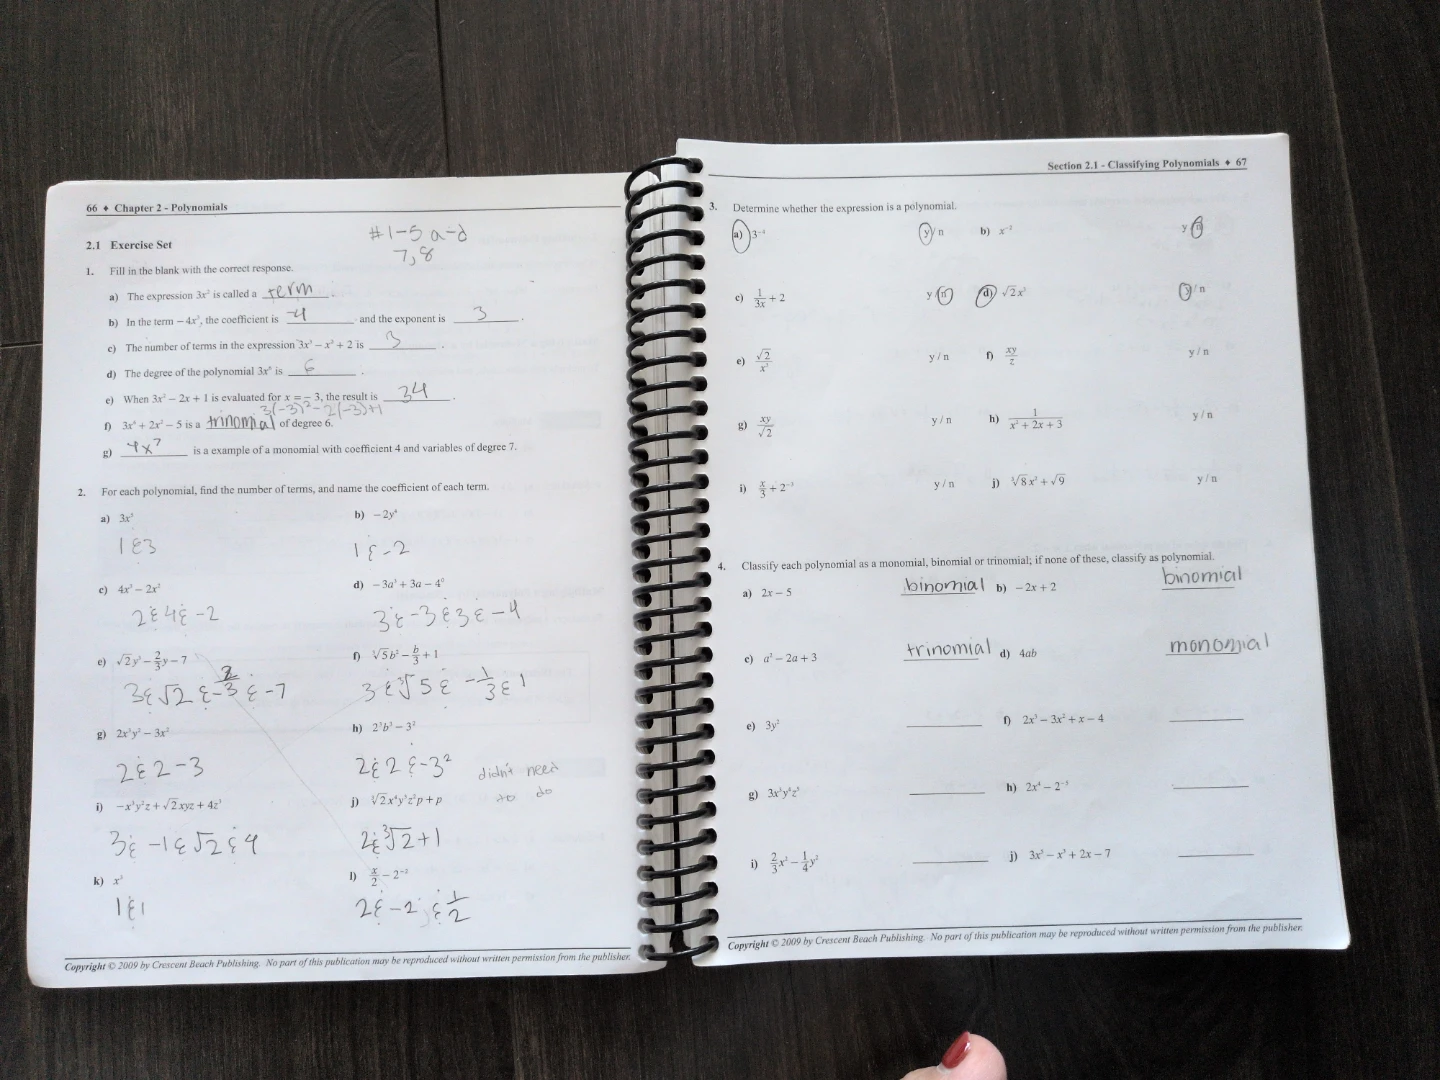 66 ♦ Chapter 2 - Polynomials
#1-5 a-d
7,8
2.1 Exercise Set
1. Fill in the blank with the correct response.
a) The expression 3x² is called a term.
b) In the term – 4x³, the coefficient is -4 and the exponent is 3.
c) The number of terms in the expression 3x³ – x² + 2 is 3.
d) The degree of the polynomial 3x⁶ is 6.
e) When 3x² – 2x + 1 is evaluated for x = – 3, the result is 34.
3(-3)²-2(-3)+1
f) 3x⁶ + 2x² – 5 is a trinomial of degree 6.
g) 4x⁷ is a example of a monomial with coefficient 4 and variables of degree 7.
2. For each polynomial, find the number of terms, and name the coefficient of each term.
a) 3x³ b) –2y⁴
1 & 3 1 & -2
c) 4x³ – 2x² d) –3a³ + 3a – 4⁰
2 & 4 & -2 3 & -3 & 3 & -4
e) √2y³ – 2/3y – 7 f) ∛5b² – b/3 + 1
3 & √2 & -2/3 & -7 3 & ∛5 & -1/3 & 1
g) 2x³y³ – 3x² h) 2³b³ – 3²
2 & 2 -3 2 & 2 & -3²
didn't need
to do
i) –x³y²z + √2xyz + 4z³ j) ∛2x⁴y³z²p + p
3 & -1 & √2 & 4 2 & ∛2 + 1
k) x³ l) x/2 – 2⁻²
1 & 1 2 & -2 & 1/2
Copyright © 2009 by Crescent Beach Publishing. No part of this publication may be reproduced without written permission from the publisher.
Section 2.1 - Classifying Polynomials ♦ 67
3. Determine whether the expression is a polynomial.
a) 3⁻⁴ y / n b) x⁻² y / n
c) 1/3x + 2 y / n d) √2x³ y / n
e) √2/x² y / n f) xy/z y / n
g) xy/√2 y / n h) 1/x² + 2x + 3 y / n
i) x/3 + 2⁻³ y / n j) ∛8x² + √9 y / n
4. Classify each polynomial as a monomial, binomial or trinomial; if none of these, classify as polynomial.
a) 2x – 5 binomial b) –2x + 2 binomial
c) a² – 2a + 3 trinomial d) 4ab monomial
e) 3y² f) 2x³ – 3x² + x – 4
g) 3x³y⁴z⁵ h) 2x⁴ – 2⁻³
i) 2/3x² – 1/4y² j) 3x⁵ – x³ + 2x – 7
Copyright © 2009 by Crescent Beach Publishing. No part of this publication may be reproduced without written permission from the publisher.